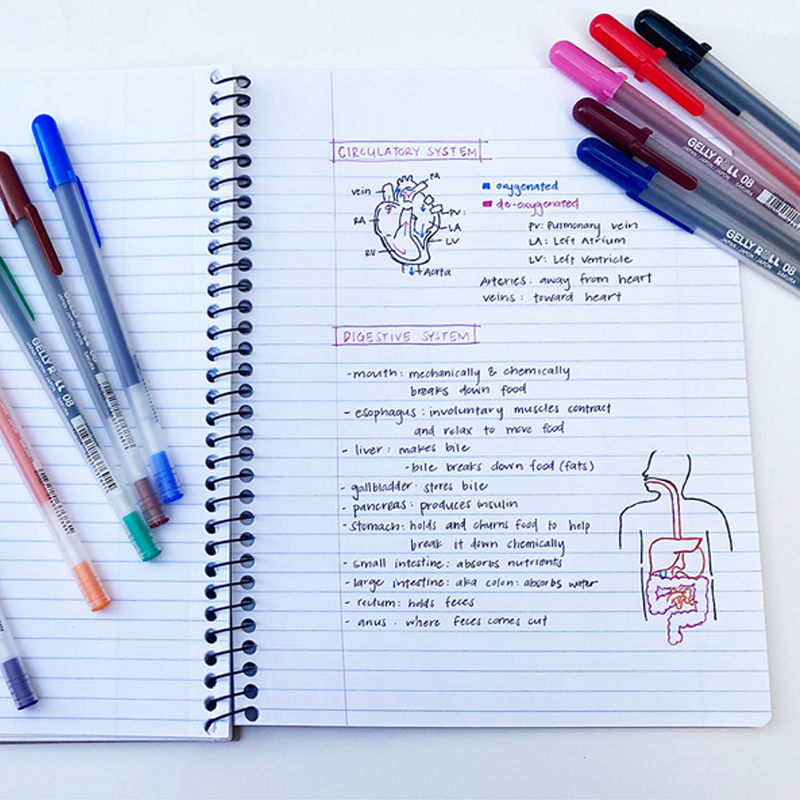 CIRCULATORY SYSTEM
vein
PA
RA
PV:
LA
LV
RV
Aorta
oxygenated
de-oxygenated
PV: Pulmonary vein
LA: Left Atrium
LV: Left Ventricle
Arteries: away from heart
veins: toward heart
DIGESTIVE SYSTEM
- mouth: mechanically & chemically
breaks down food
- esophagus: involuntary muscles contract
and relax to move food
- liver: makes bile
- bile breaks down food (fats)
- gallbladder: stores bile
- pancreas: produces insulin
- stomach: holds and churns food to help
break it down chemically
- small intestine: absorbs nutrients
- large intestine: aka colon: absorbs water
- rectum: holds feces
- anus: where feces comes out
GELLY ROLL 08
JAPAN/JAPON/JAPÓN SAKURA
GELLY ROLL 08
JAPAN/JAPON/JAPÓN SAKURA
GELLY ROLL 08
JAPAN/JAPON/JAPÓN SAKURA